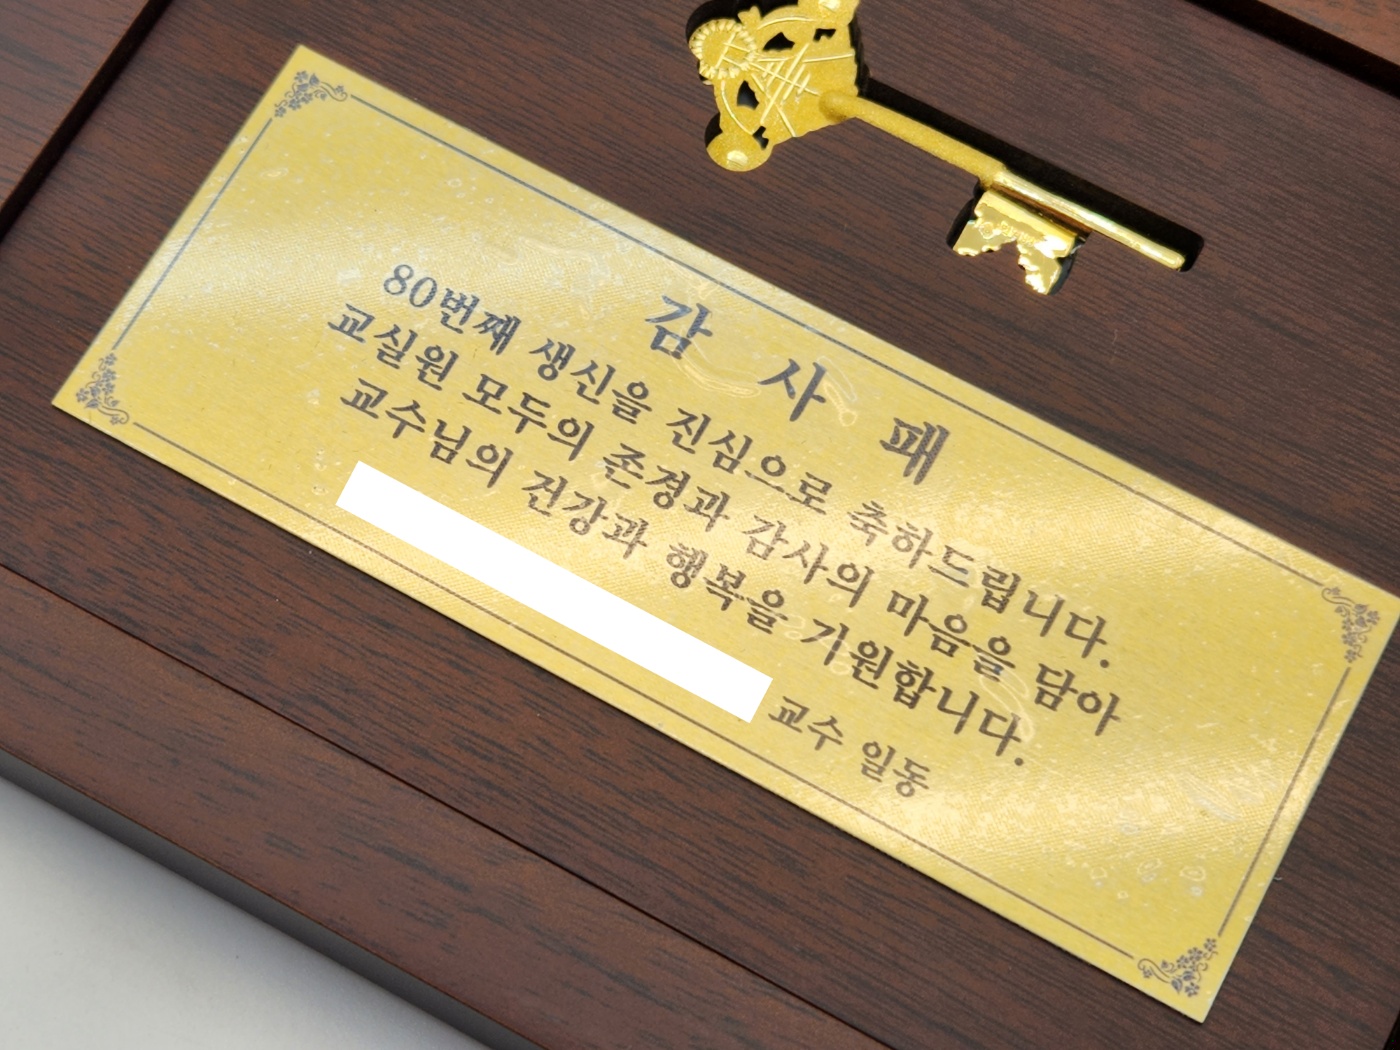 감 사 패
80번째 생신을 진심으로 축하드립니다.
교실원 모두의 존경과 감사의 마음을 담아
교수님의 건강과 행복을 기원합니다.
교수 일동